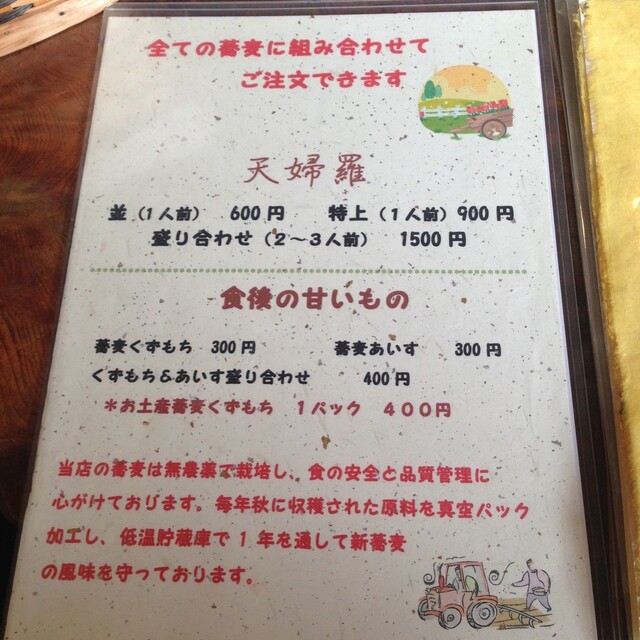 全ての蕎麦に組み合わせて
ご注文できます
天婦羅
並（1人前） 600円 特上（1人前）900円
盛り合わせ（2～3人前） 1500円
食後の甘いもの
蕎麦くずもち 300円 蕎麦あいす 300円
くずもち＆あいす盛り合わせ 400円
＊お土産蕎麦くずもち 1パック 400円
当店の蕎麦は無農薬で栽培し、食の安全と品質管理に
心がけております。毎年秋に収穫された原料を真空パック
加工し、低温貯蔵庫で1年を通して新蕎麦
の風味を守っております。